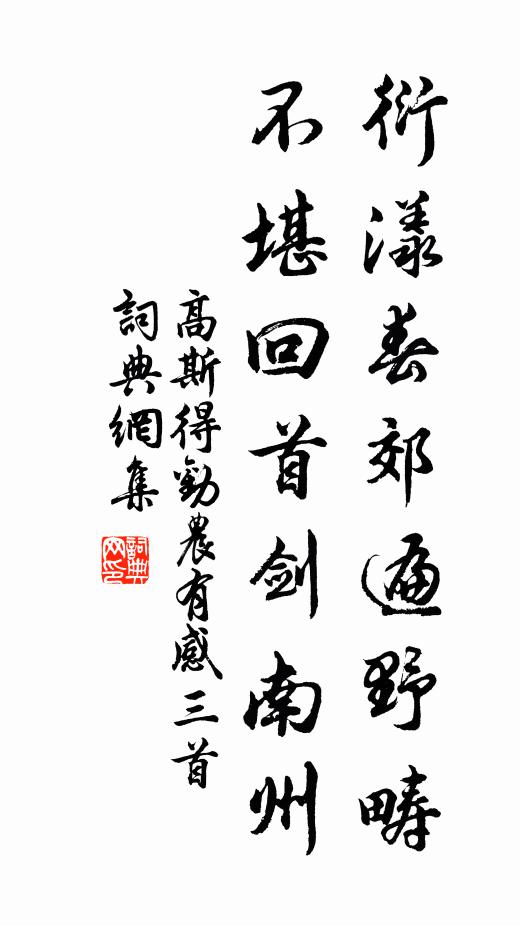 衍漾春郊遍野疇
不堪回首劍南州
高斯得勸農有感三首
詞典網集
詞典網印